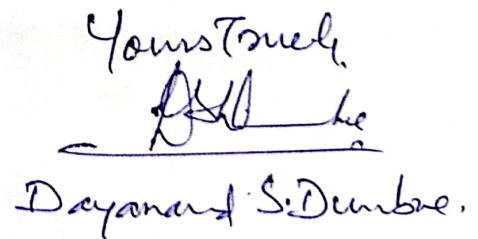 Yours Truely.
Dayanand S. Dumbre.